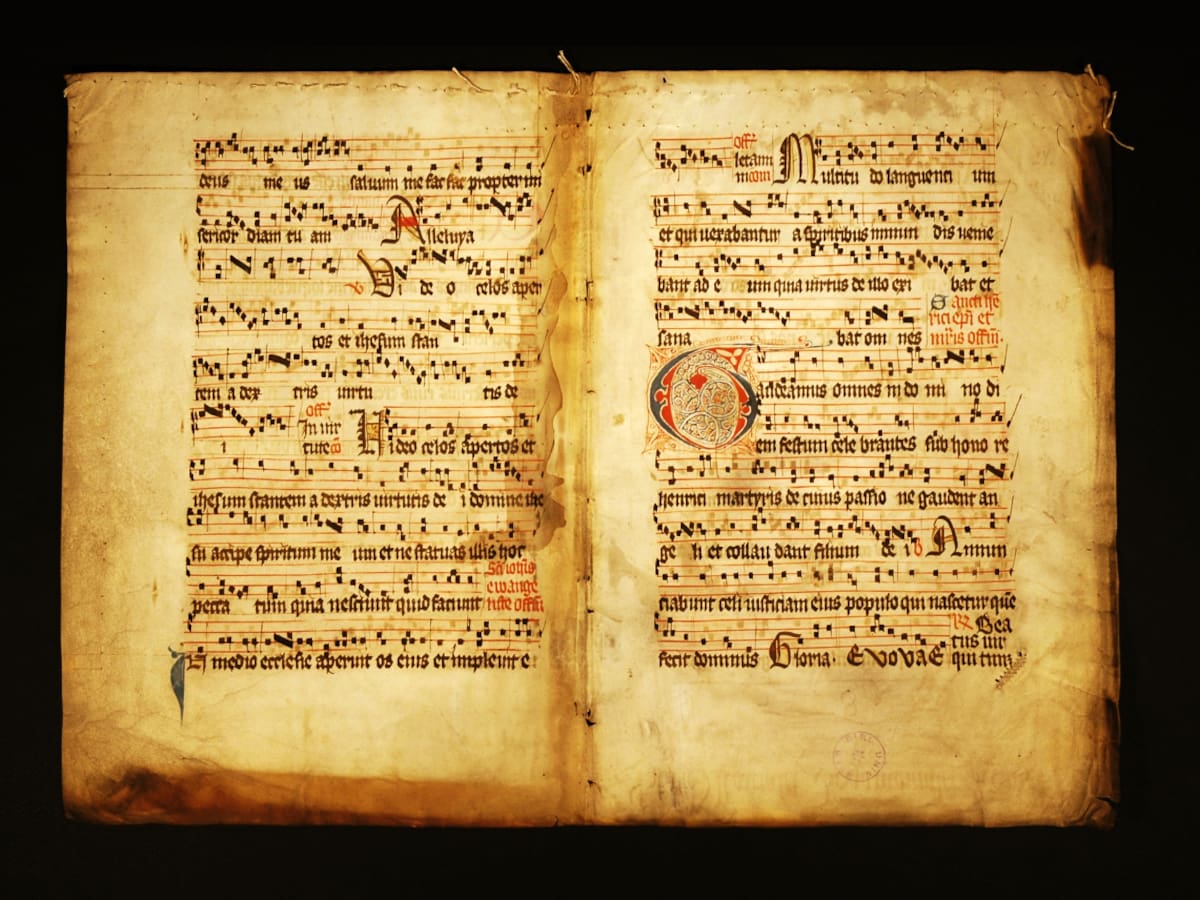 deus me us saluum me fac fac propter mi
sericor diam tu am Alleluya
Vi de o celos aper
tos et ihesum stan
tem a dex tris uirtu tis de
i Off In uir tute Video celos apertos et
ihesum stantem a dextris uirtutis de i domine ihe
su accipe spiritum me um et ne statuas illis hoc
pecca tum quia nesciunt quid faciunt
Sci iohis ewange liste offm
In medio ecclesie aperuit os eius et impleuit e
Off letam ini com Multitu do languenti um
et qui uexabantur a spiritibus inmun dis uenie
bant ad e um quia uirtus de illo exi bat et
sana bat om nes
Sancti he rici epi et mris offm
Gaudeamus omnes in do mi no di
em festum cele brantes sub hono re
henrici martyris de cuius passio ne gaudent an
ge li et collau dant filium de i Annun
ciabunt celi iusticiam eius populo qui nascetur que
fecit dominus Gloria. EVOVAE
Bea tus uir qui tim